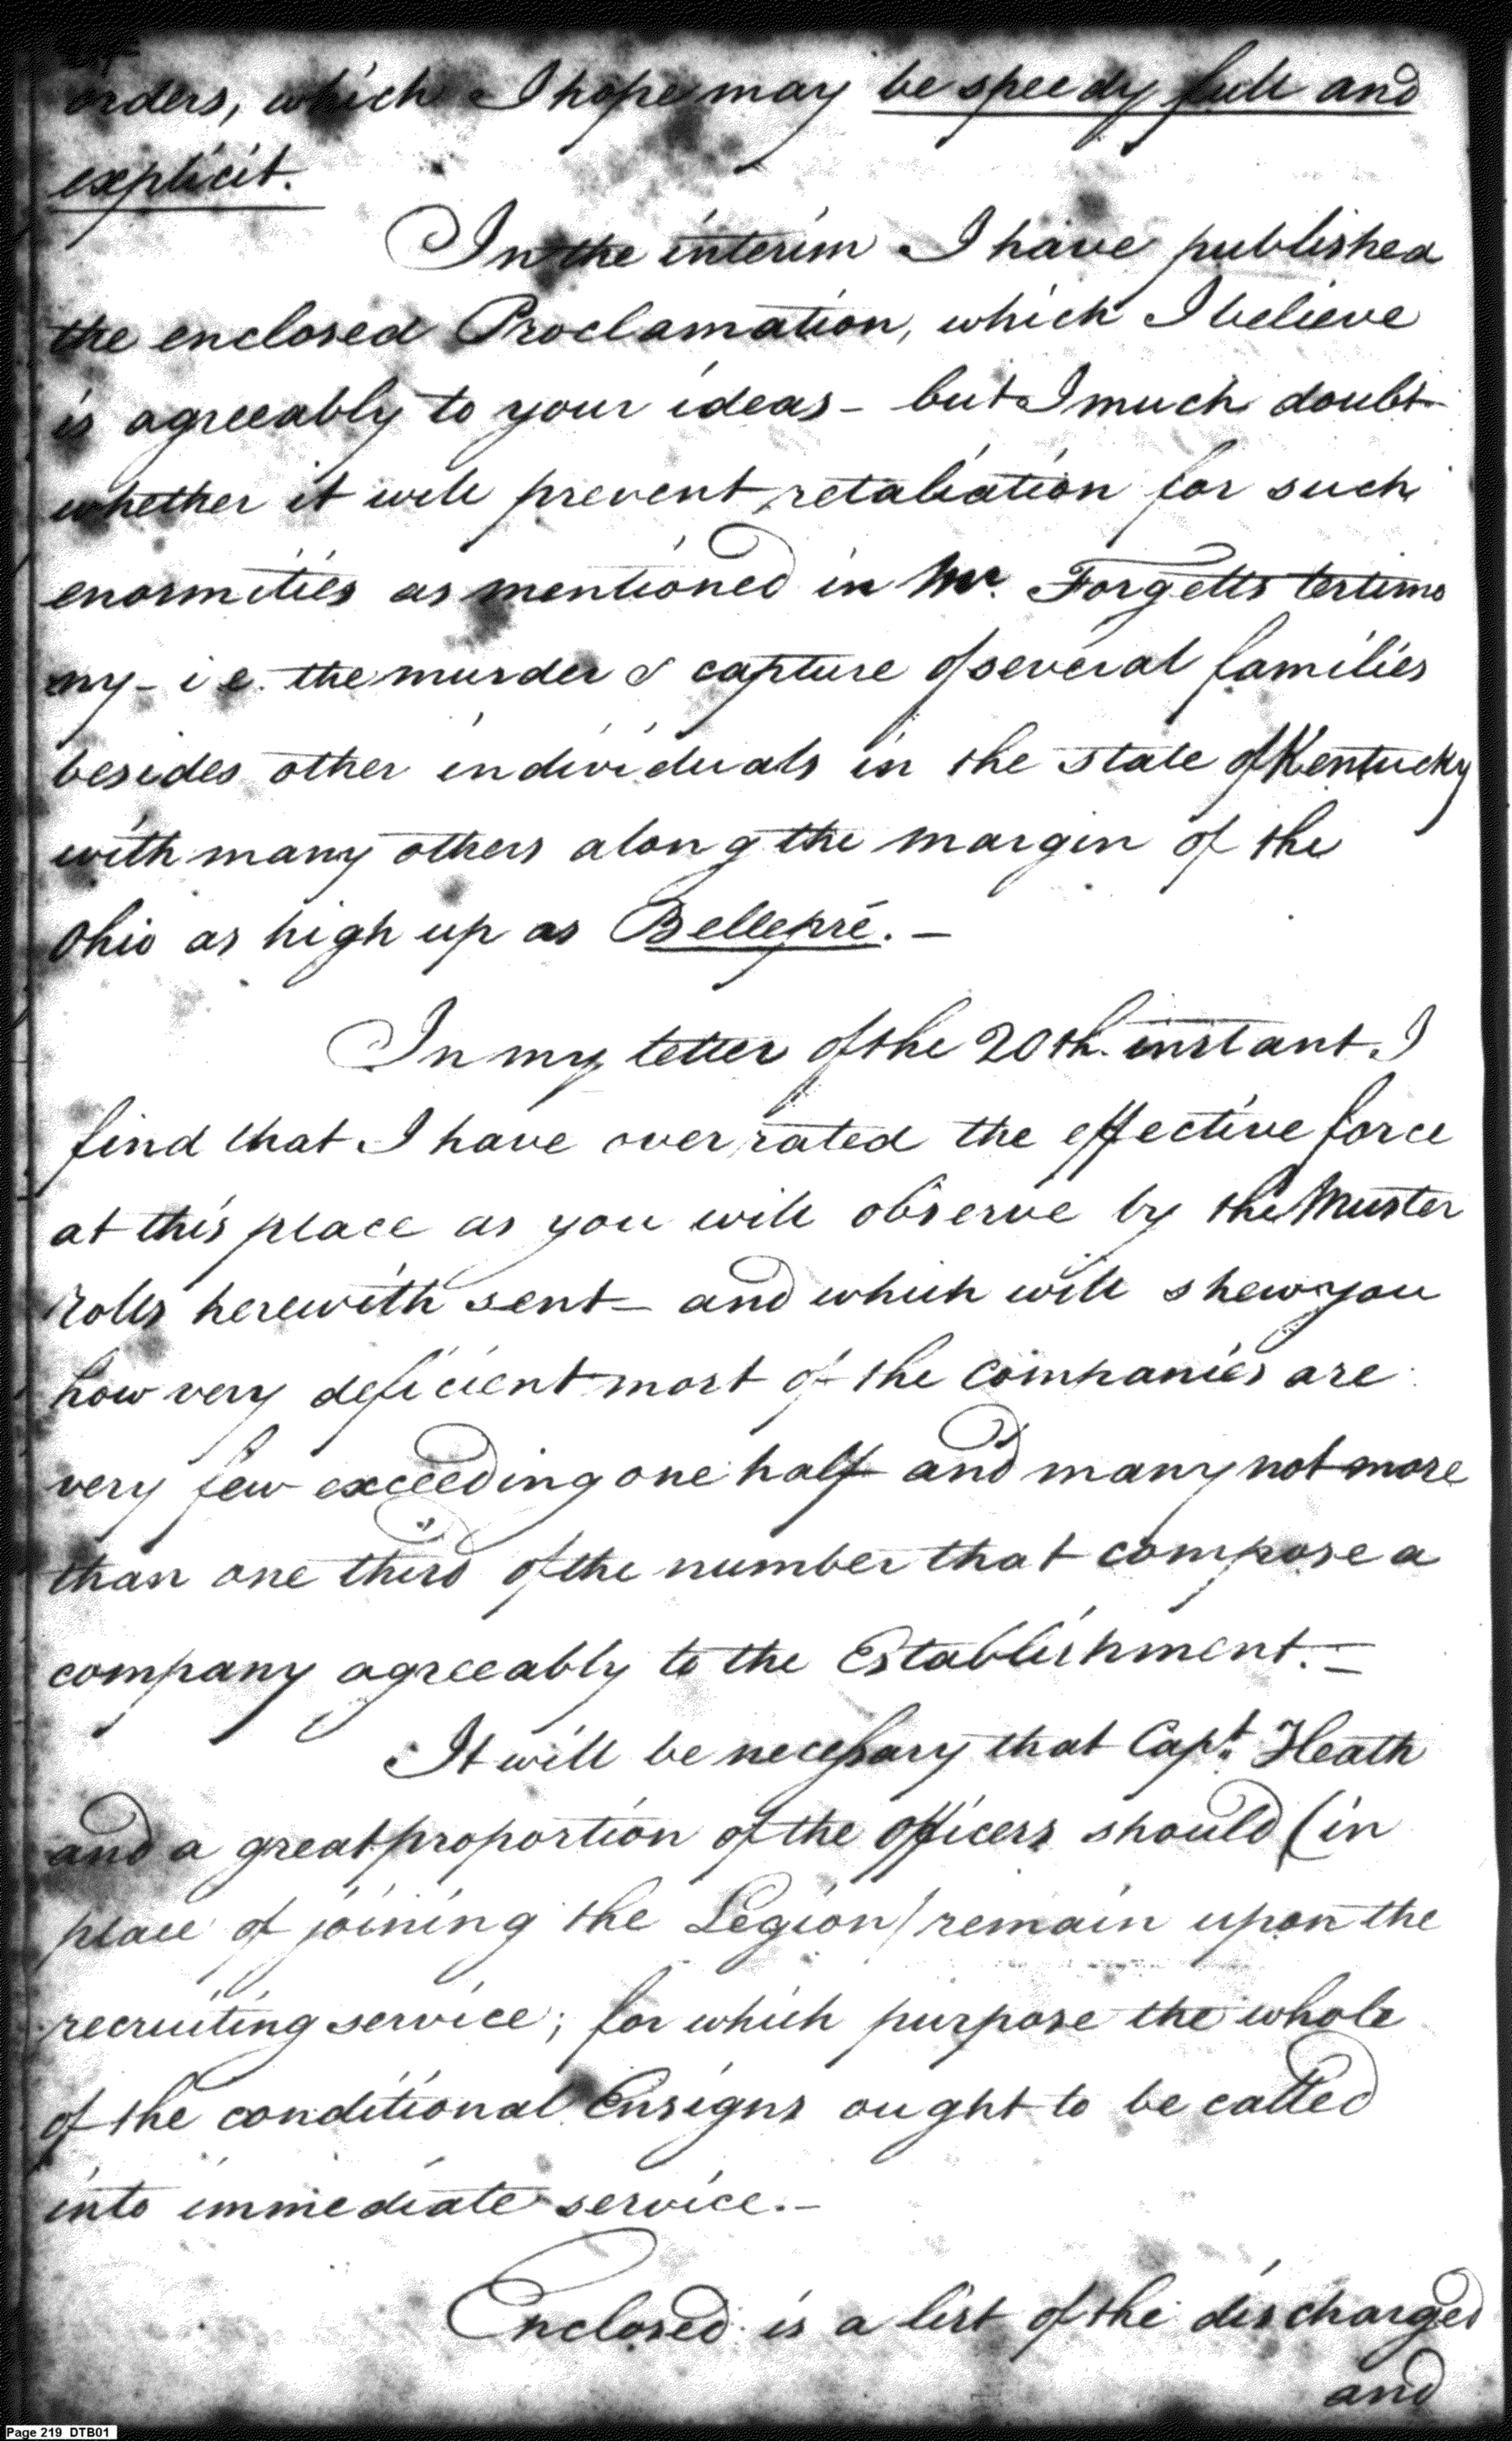 orders, which I hope may be speedy full and
explicit.
In the interim I have published
the enclosed Proclamation, which I believe
is agreeably to your ideas - but I much doubt
whether it will prevent retaliation for such
enormities as mentioned in Mr. Forgetts testimo
ny - i e. the murder & capture of several families
besides other individuals in the state of Kentucky
with many others along the margin of the
Ohio as high up as Bellepré. -
In my letter of the 20th. instant. I
find that I have over rated the effective force
at this place as you will observe by the Muster
rolls herewith sent - and which will shew you
how very deficient most of the companies are
very few exceeding one half and many not more
than one third of the number that compose a
company agreeably to the Establishment. -
It will be necessary that Capt. Heath
and a great proportion of the officers should (in
place of joining the Legion) remain upon the
recruiting service; for which purpose the whole
of the conditional Ensigns ought to be called
into immediate service. -
Enclosed is a list of the discharged
and
Page 219 DTB01